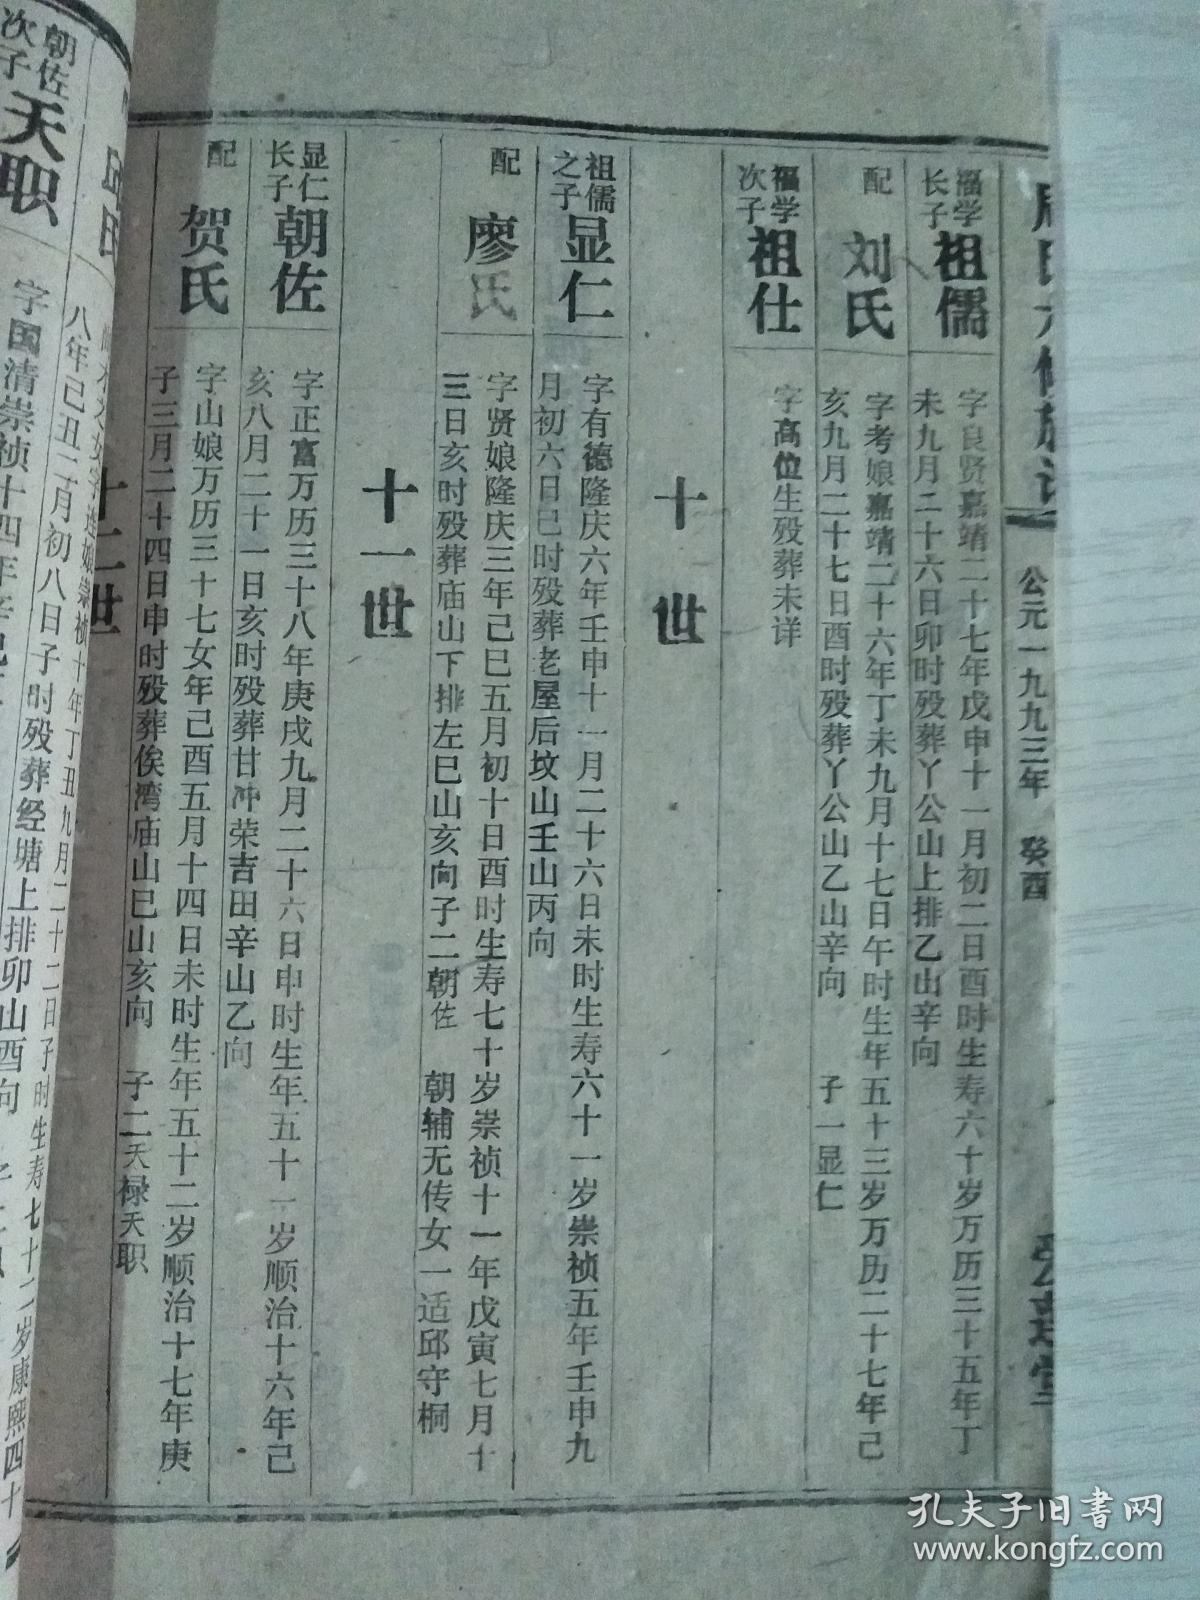 公元一九九三年 癸酉
福学
长子
祖儒
字良贤嘉靖二十七年戊申十一月初二日酉时生寿六十岁万历三十五年丁
未九月二十六日卯时殁葬丫公山上排乙山辛向
配
刘氏
字考娘嘉靖二十六年丁未九月十七日午时生年五十三岁万历二十七年己
亥九月二十七日酉时殁葬丫公山乙山辛向 子一显仁
福学
次子
祖仕
字高位生殁葬未详
十世
祖儒
之子
显仁
字有德隆庆六年壬申十一月二十六日未时生寿六十一岁崇祯五年壬申九
月初六日巳时殁葬老屋后坟山壬山丙向
配
廖氏
字贤娘隆庆三年己巳五月初十日酉时生寿七十岁崇祯十一年戊寅七月十
三日亥时殁葬庙山下排左巳山亥向子二朝佐 朝辅无传女一适邱守桐
十一世
显仁
长子
朝佐
字正富万历三十八年庚戌九月二十六日申时生年五十一岁顺治十六年己
亥八月二十一日亥时殁葬甘冲荣吉田辛山乙向
配
贺氏
字山娘万历三十七女年己酉五月十四日未时生年五十二岁顺治十七年庚
子三月二十四日申时殁葬俟湾庙山巳山亥向 子二天禄天职
十二世
八年己丑二月初八日子时殁葬经塘上排卯山酉向
朝佐
次子
天职
字国清崇祯十四年辛巳
孔夫子旧书网
www.kongfz.com